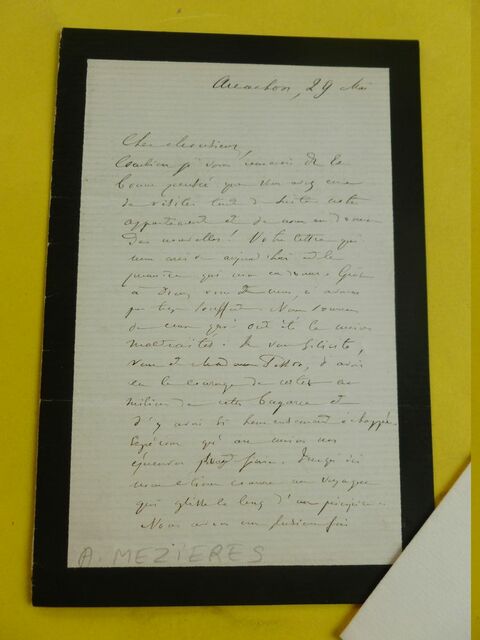 Arcachon, 29 Mai
Cher Monsieur,
Combien je vous remercie de la
bonne pensée que vous avez eue
de visiter tout de suite notre
appartement et de nous en donner
des nouvelles! Votre lettre qui
nous arrive aujourd'hui est la
première qui nous en donne. Grâce
à Dieu, vous et nous, n'avons
pas trop souffert. Nous sommes
de ceux qui ont été le moins
maltraités. Je vous félicite,
vous et Madame, d'avoir
eu le courage de rester au
milieu de cette bagarre et
d'y avoir si heureusement échappé.
Espérons qu'au moins nos
épreuves sont finies. Jusqu'ici
nous étions comme un voyageur
qui glisse le long d'un précipice.
Nous avons eu plusieurs fois
A. MEZIERES